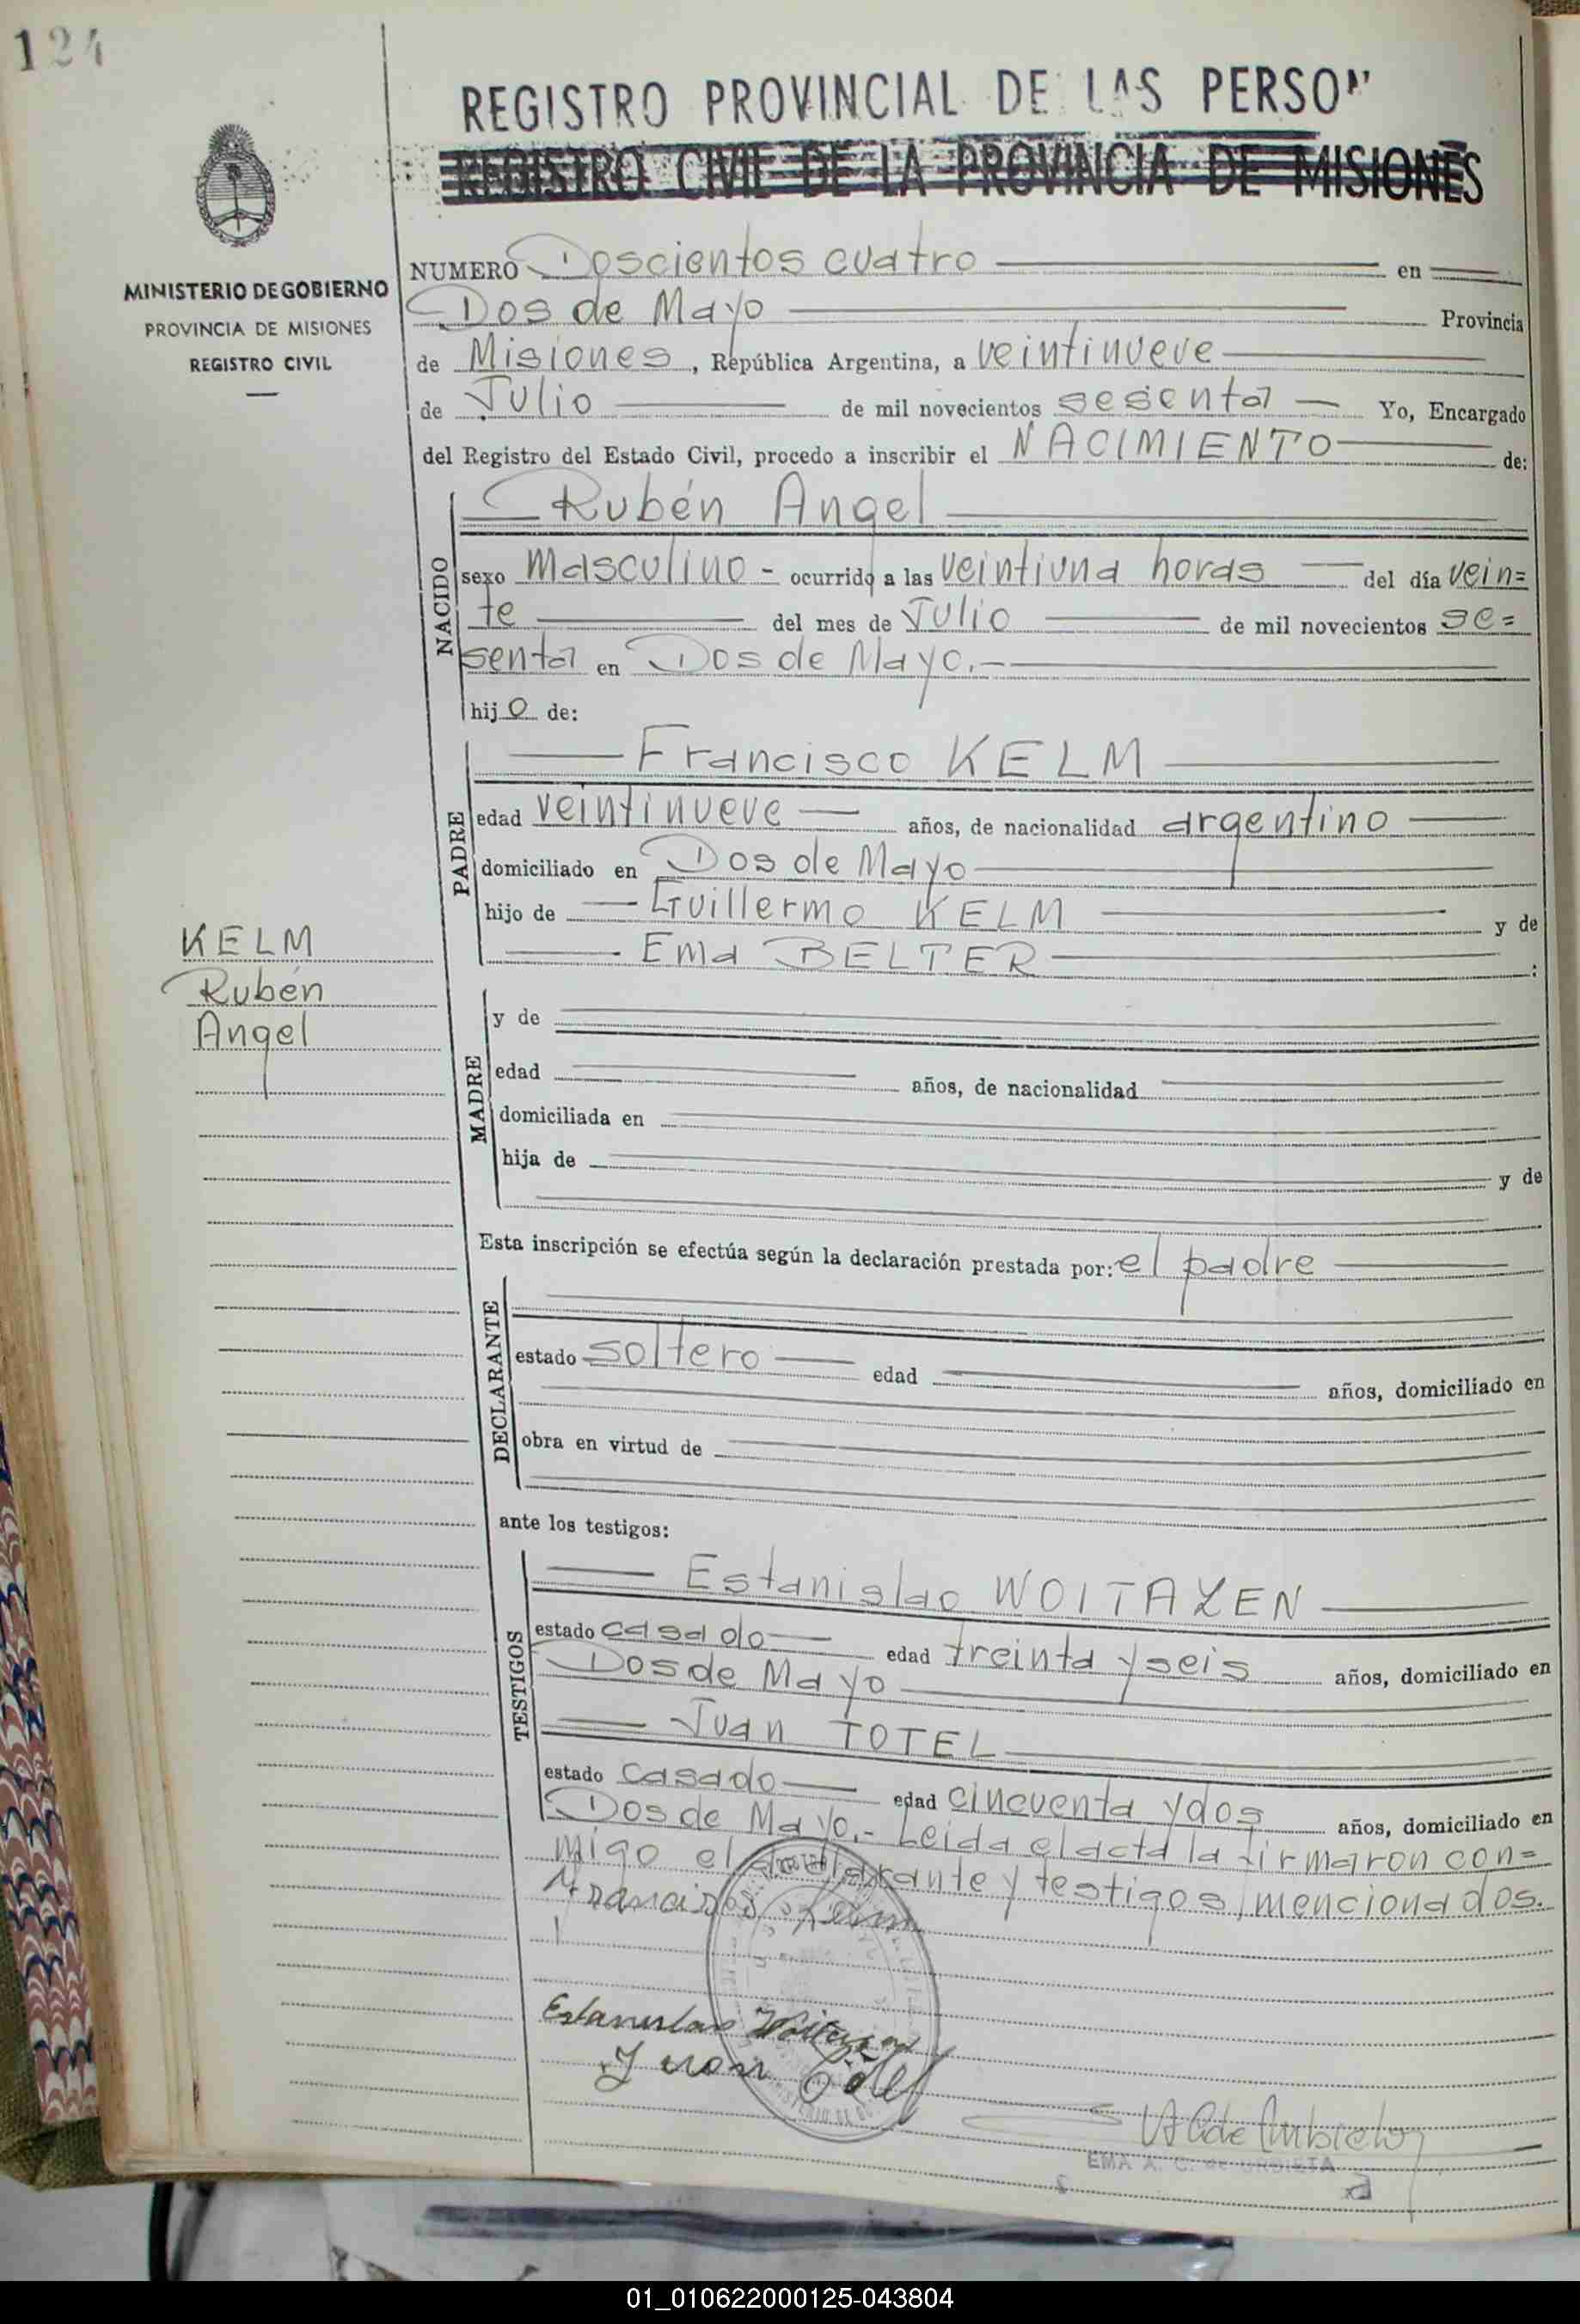 124
REGISTRO PROVINCIAL DE LAS PERSON
REGISTRO CIVIL DE LA PROVINCIA DE MISIONES
MINISTERIO DE GOBIERNO
PROVINCIA DE MISIONES
REGISTRO CIVIL
NUMERO Doscientos cuatro en
Dos de Mayo Provincia
de Misiones, República Argentina, a veintinueve
de Julio de mil novecientos sesenta Yo, Encargado
del Registro del Estado Civil, procedo a inscribir el NACIMIENTO de:
NACIDO
Rubén Angel
sexo Masculino - ocurrido a las veintiuna horas del día vein=
te del mes de Julio de mil novecientos se=
senta en Dos de Mayo.-
hijo de:
PADRE
Francisco KELM
edad veintinueve años, de nacionalidad argentino
domiciliado en Dos de Mayo
hijo de Guillermo KELM y de
Ema BELTER :
KELM
Rubén
Angel
MADRE
y de
edad años, de nacionalidad
domiciliada en
hija de y de
Esta inscripción se efectúa según la declaración prestada por: el padre
DECLARANTE
estado soltero edad años, domiciliado en
obra en virtud de
ante los testigos:
TESTIGOS
Estanislao WOITAZEN
estado casado edad treinta y seis años, domiciliado en
Dos de Mayo
Juan TOTEL
estado casado edad cincuenta y dos años, domiciliado en
Dos de Mayo.- Leida el acta la firmaron con=
migo el declarante y testigos mencionados.
Francisco Kelm
Estanislao
Juan
EMA A. C. de URBIETA
01_010622000125-043804